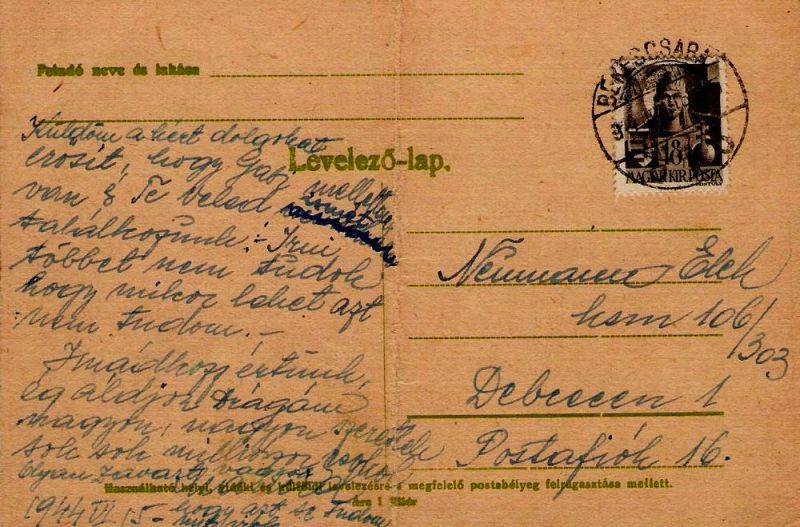 BÉKÉSCSABA
18
MAGYAR KIR. POSTA
Feladó neve és lakása
Levelező-lap.
Küldöm a kért dolgokat
erősít, hogy Gabi mellett
van, & Te veled
találkozunk! Irni
többet nem tudok
hogy mikor lehet azt
nem tudom.-
Imádkozz értünk,
ég áldjon Drágám
nagyon, nagyon szeretlek
sok sok milliószor csókol
olyan zavart vagyok
hogy azt se tudom
1944 VI 15-
Neumann Elek
ksm 106/303
Debrecen 1
Postafiók 16.
Használható helyi, vidéki és külföldi levelezésre a megfelelő postabélyeg felragasztása mellett.
Ára 1 fillér